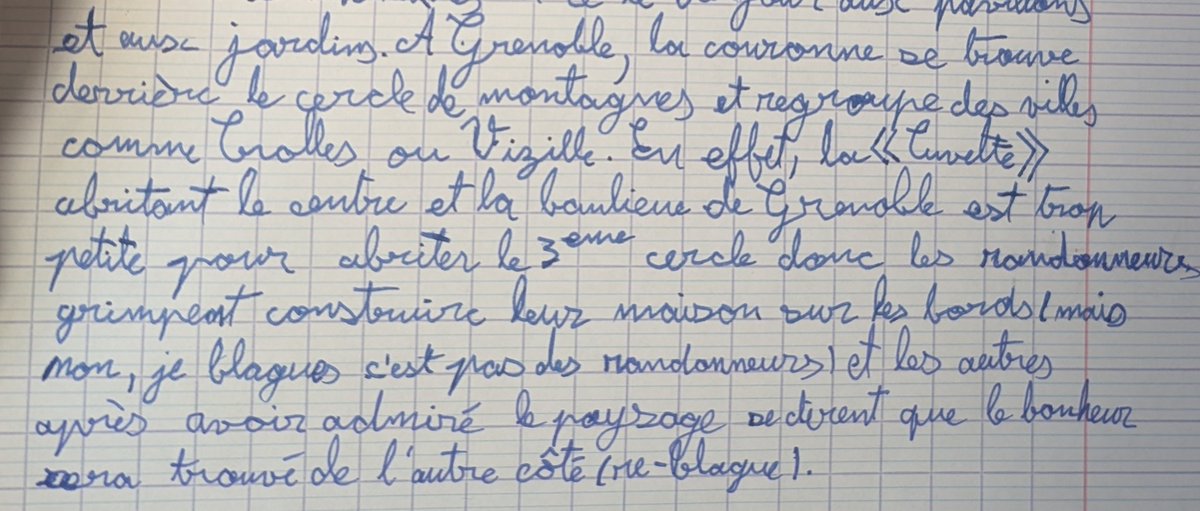 jour aux pavillons
et aux jardins. A Grenoble, la couronne se trouve
derrière le cercle de montagnes et regroupe des villes
comme Crolles ou Vizille. En effet, la «Cuvette»
abritant le centre et la banlieue de Grenoble est trop
petite pour abriter le 3eme cercle donc les randonneurs
grimpent construire leur maison sur les bords (mais
non, je blagues c'est pas des randonneurs) et les autres
après avoir admiré le paysage se dirent que le bonheur
sera trouvé de l'autre côté (re-blague).